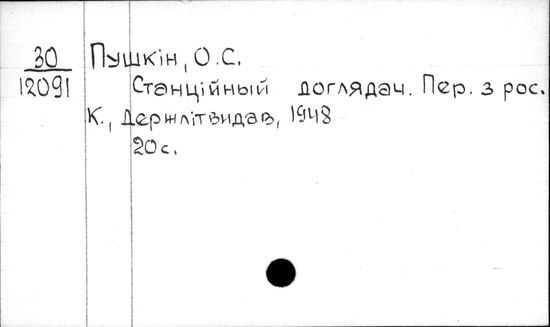 30
12091
Пушкін, О.С.
Станційный доглядач. Пер. з рос.
К., Держлітвидав, 1948
20 с.